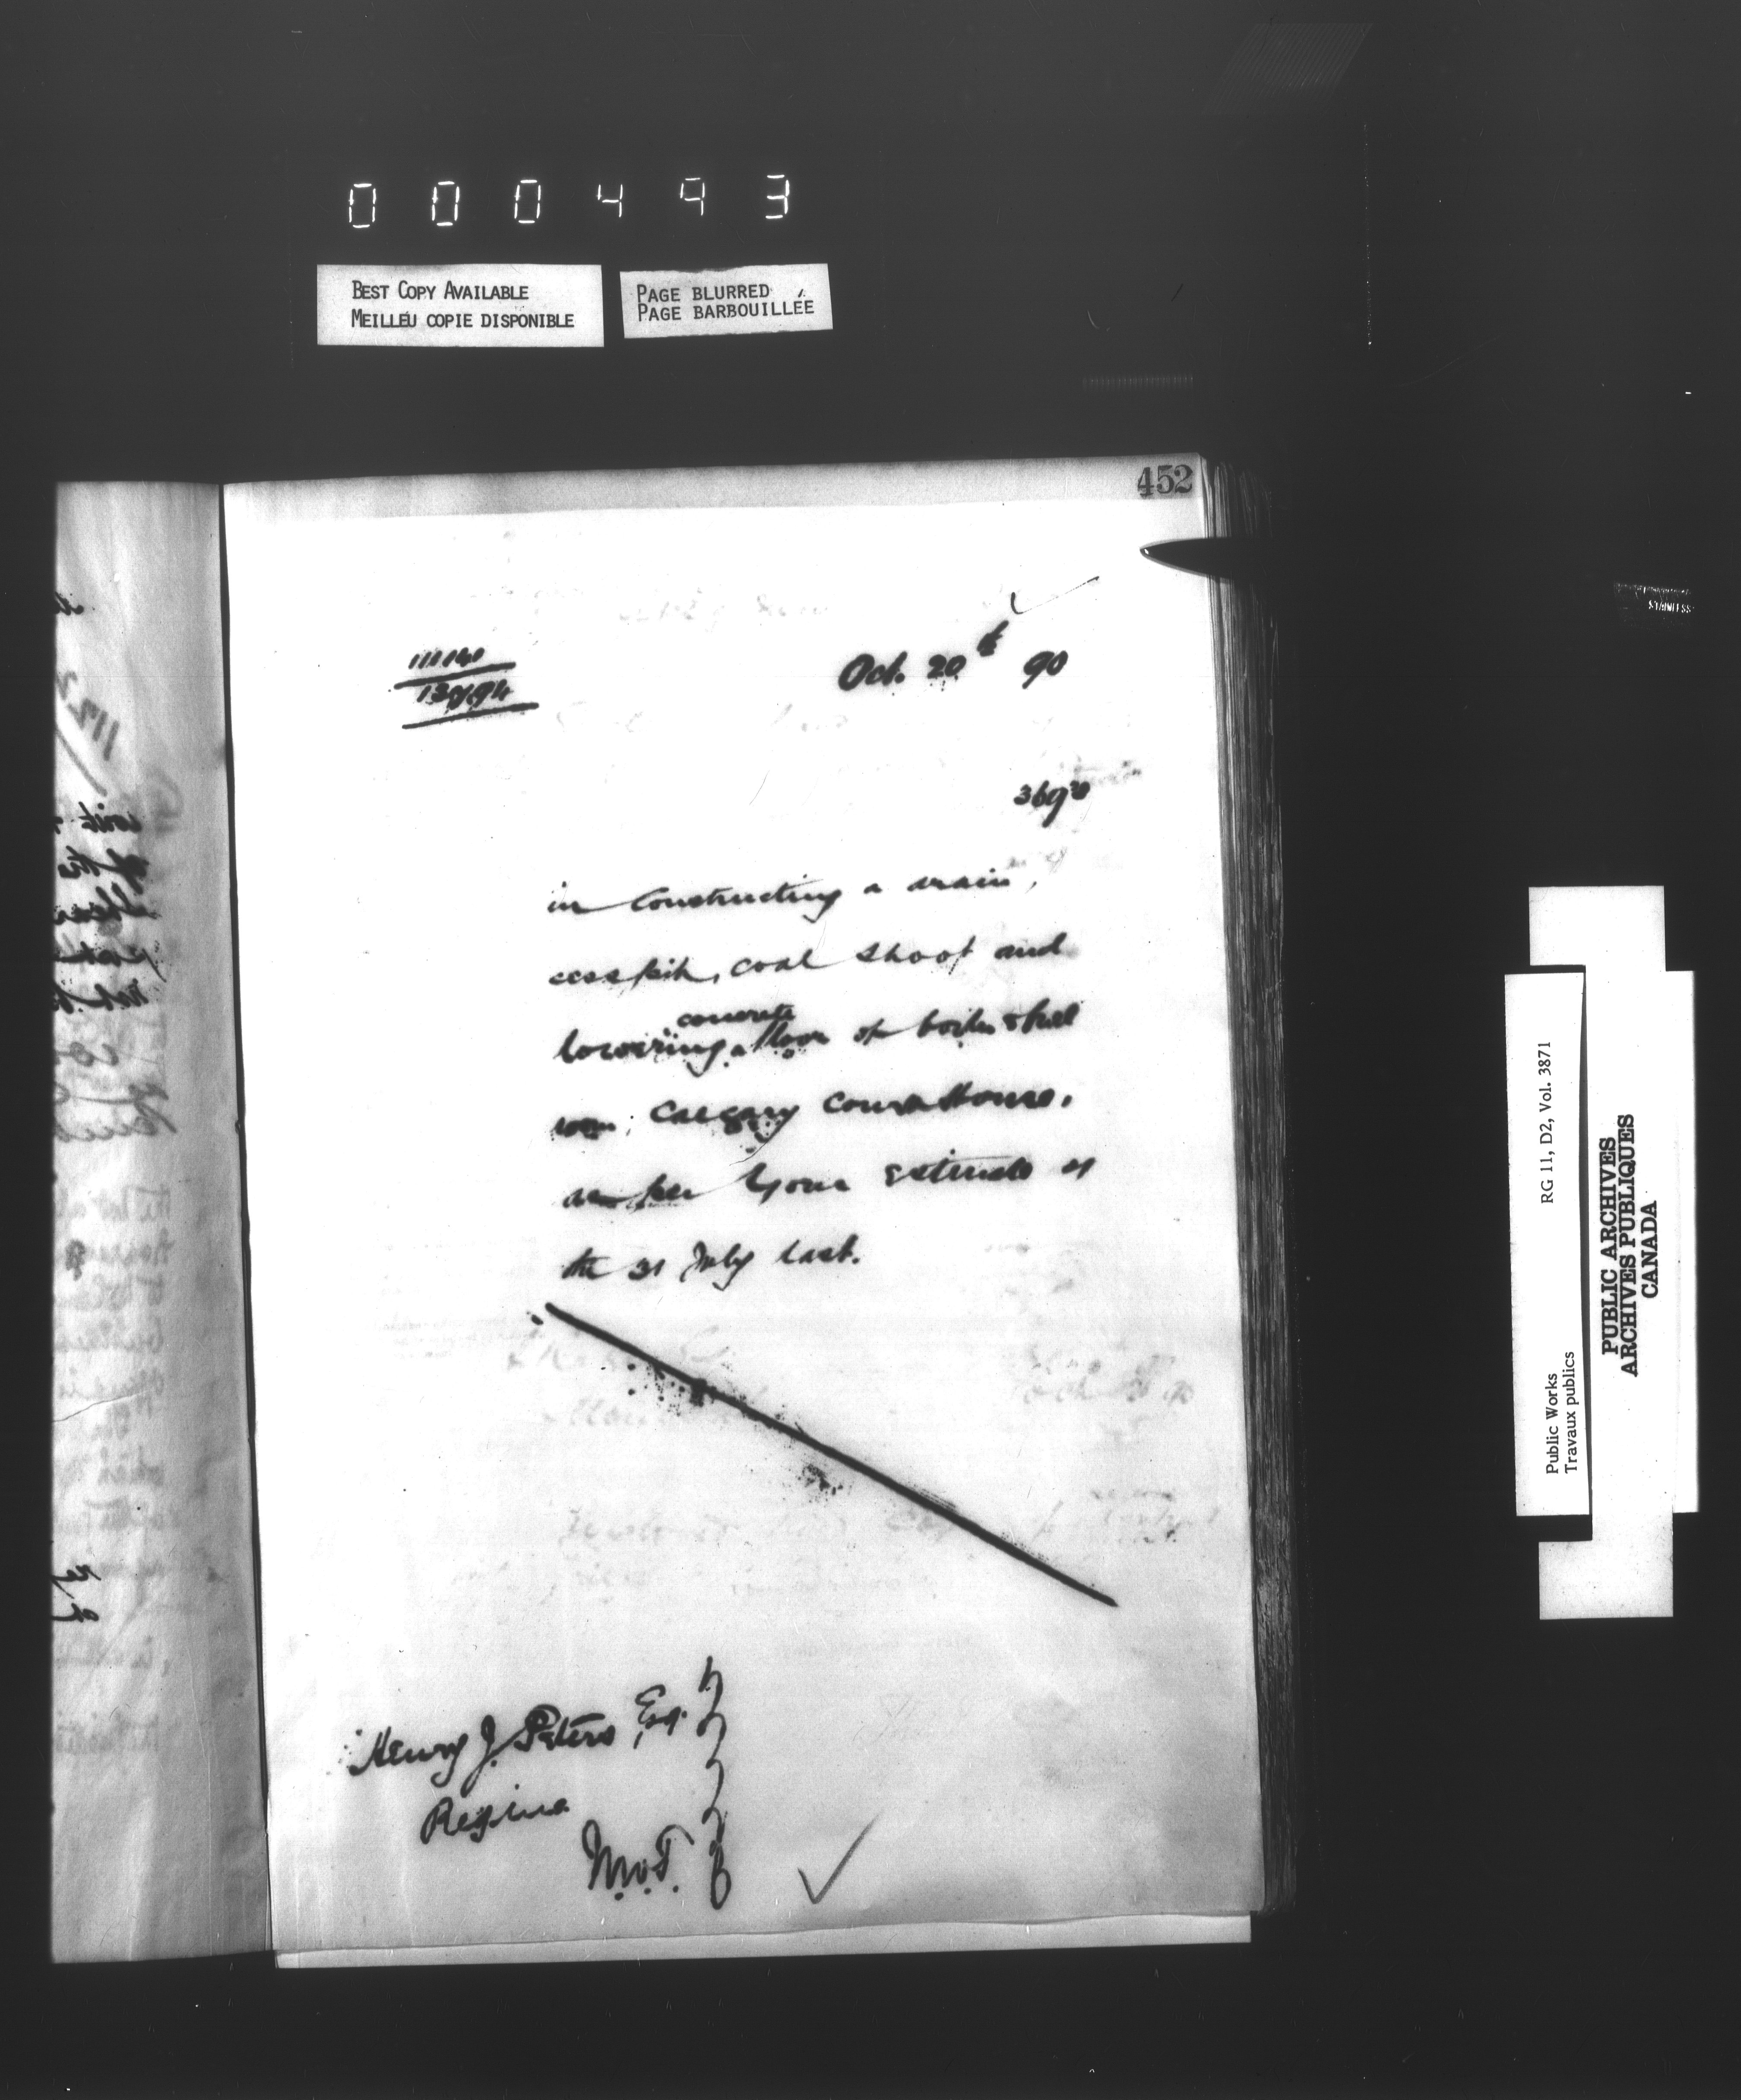 000493
BEST COPY AVAILABLE
MEILLEU COPIE DISPONIBLE
PAGE BLURRED
PAGE BARBOUILLÉE
452
Oct. 20th 90
111140
369 30
in constructing a drain,
cesspit, coal shoot and
concrete
lowering floor of boiler & fuel
room; Calgary Court House,
as per your estimate of
the 31 July last.
Henry J. Peters, Esq.
Regina
N.W.T.
RG 11, D2, Vol. 3871
Public Works
Travaux publics
PUBLIC ARCHIVES
ARCHIVES PUBLIQUES
CANADA
STAINLESS